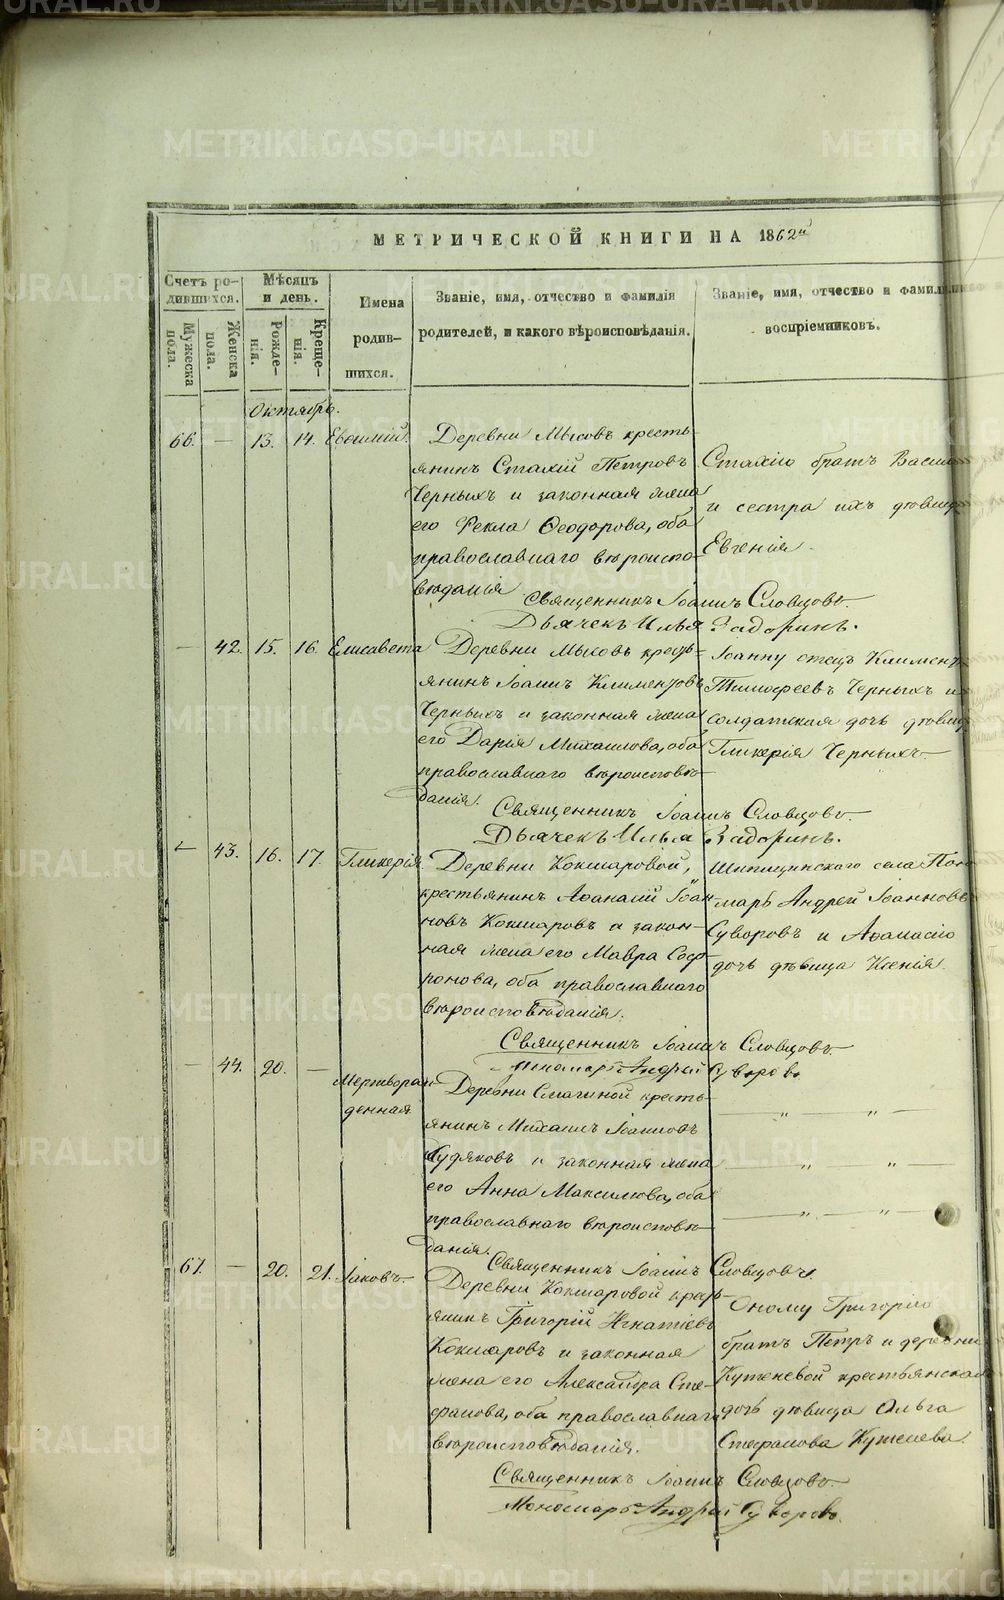 МЕТРИЧЕСКОЙ КНИГИ НА 1862й
Счетъ родившихся.
Мужеска пола.
Женска пола.
Мѣсяцъ и день.
Рожденія.
Крещенія.
Имена родившихся.
Званіе, имя, отчество и фамилія
родителей, и какого вѣроисповѣданія.
Званіе, имя, отчество и фамилія
воспріемниковъ.
Октябрь.
66. — 13. 14. Евѳимій.
Деревни Мысовъ кресть-
янинъ Стахій Петровъ
Черныхъ и законная жена
его Ѳекла Ѳеодорова, оба
православнаго вѣроиспо-
вѣданія
Стахію братъ Васил
и сестра ихъ дѣвица
Евгенія.
Священникъ Іоаннъ Словцовъ.
Дьячекъ Илья Задоринъ.
— 42. 15. 16. Елисавета
Деревни Мысовъ кресть-
янинъ Іоаннъ Климентовъ
Черныхъ и законная жена
его Дарія Михаилова, оба
православнаго вѣроисповѣ-
данія.
Іоанну отецъ Климент
Тимоѳеевъ Черныхъ и
солдатская дочь дѣвица
Гликерія Черныхъ.
Священникъ Іоаннъ Словцовъ.
Дьячекъ Илья Задоринъ.
— 43. 16. 17. Гликерія.
Деревни Кокшаровой,
крестьянинъ Аѳанасій Іоан-
новъ Кокшаровъ и закон-
ная жена его Мавра Соф-
ронова, оба православнаго
вѣроисповѣданія.
Шипицинскаго села Поно-
марь Андрей Іоанновъ
Суворовъ и Аѳанасію
дочь дѣвица Ксенія.
Священникъ Іоаннъ Словцовъ.
Пономарь Андрей Суворовъ
— 44. 20. —
Мертворож-
денная
Деревни Смагиной кресть-
янинъ Михаилъ Іоанновъ
Худяковъ и законная жена
его Анна Максимова, оба
православнаго вѣроисповѣ-
данія.
— „ — „ —
— „ — „ —
— „ — „ —
Священникъ Іоаннъ Словцовъ.
67. — 20. 21. Іаковъ.
Деревни Кокшаровой кресть-
янинъ Григорій Игнатіевъ
Кокшаровъ и законная
жена его Александра Сте-
фанова, оба православнаго
вѣроисповѣданія.
Оному Григорію
братъ Петръ и деревни
Кутеневой крестьянская
дочь дѣвица Ольга
Стефанова
Священникъ Іоаннъ Словцовъ.
Пономарь Андрей Суворовъ.
METRIKI.GASO-URAL.RU